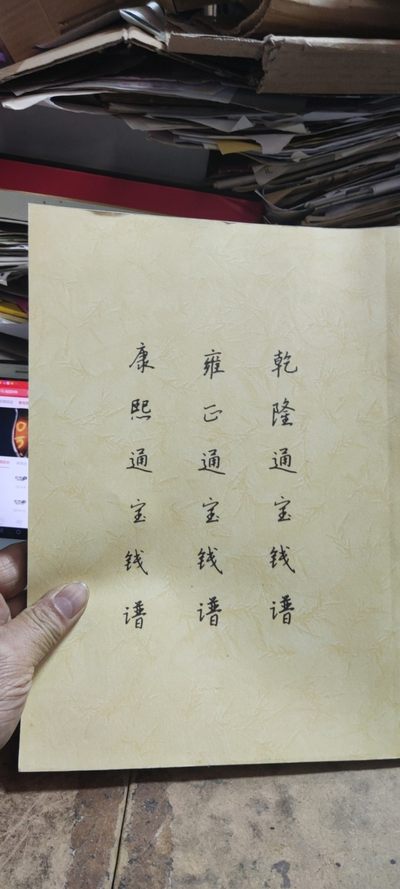 康熙通宝钱谱
雍正通宝钱谱
乾隆通宝钱谱